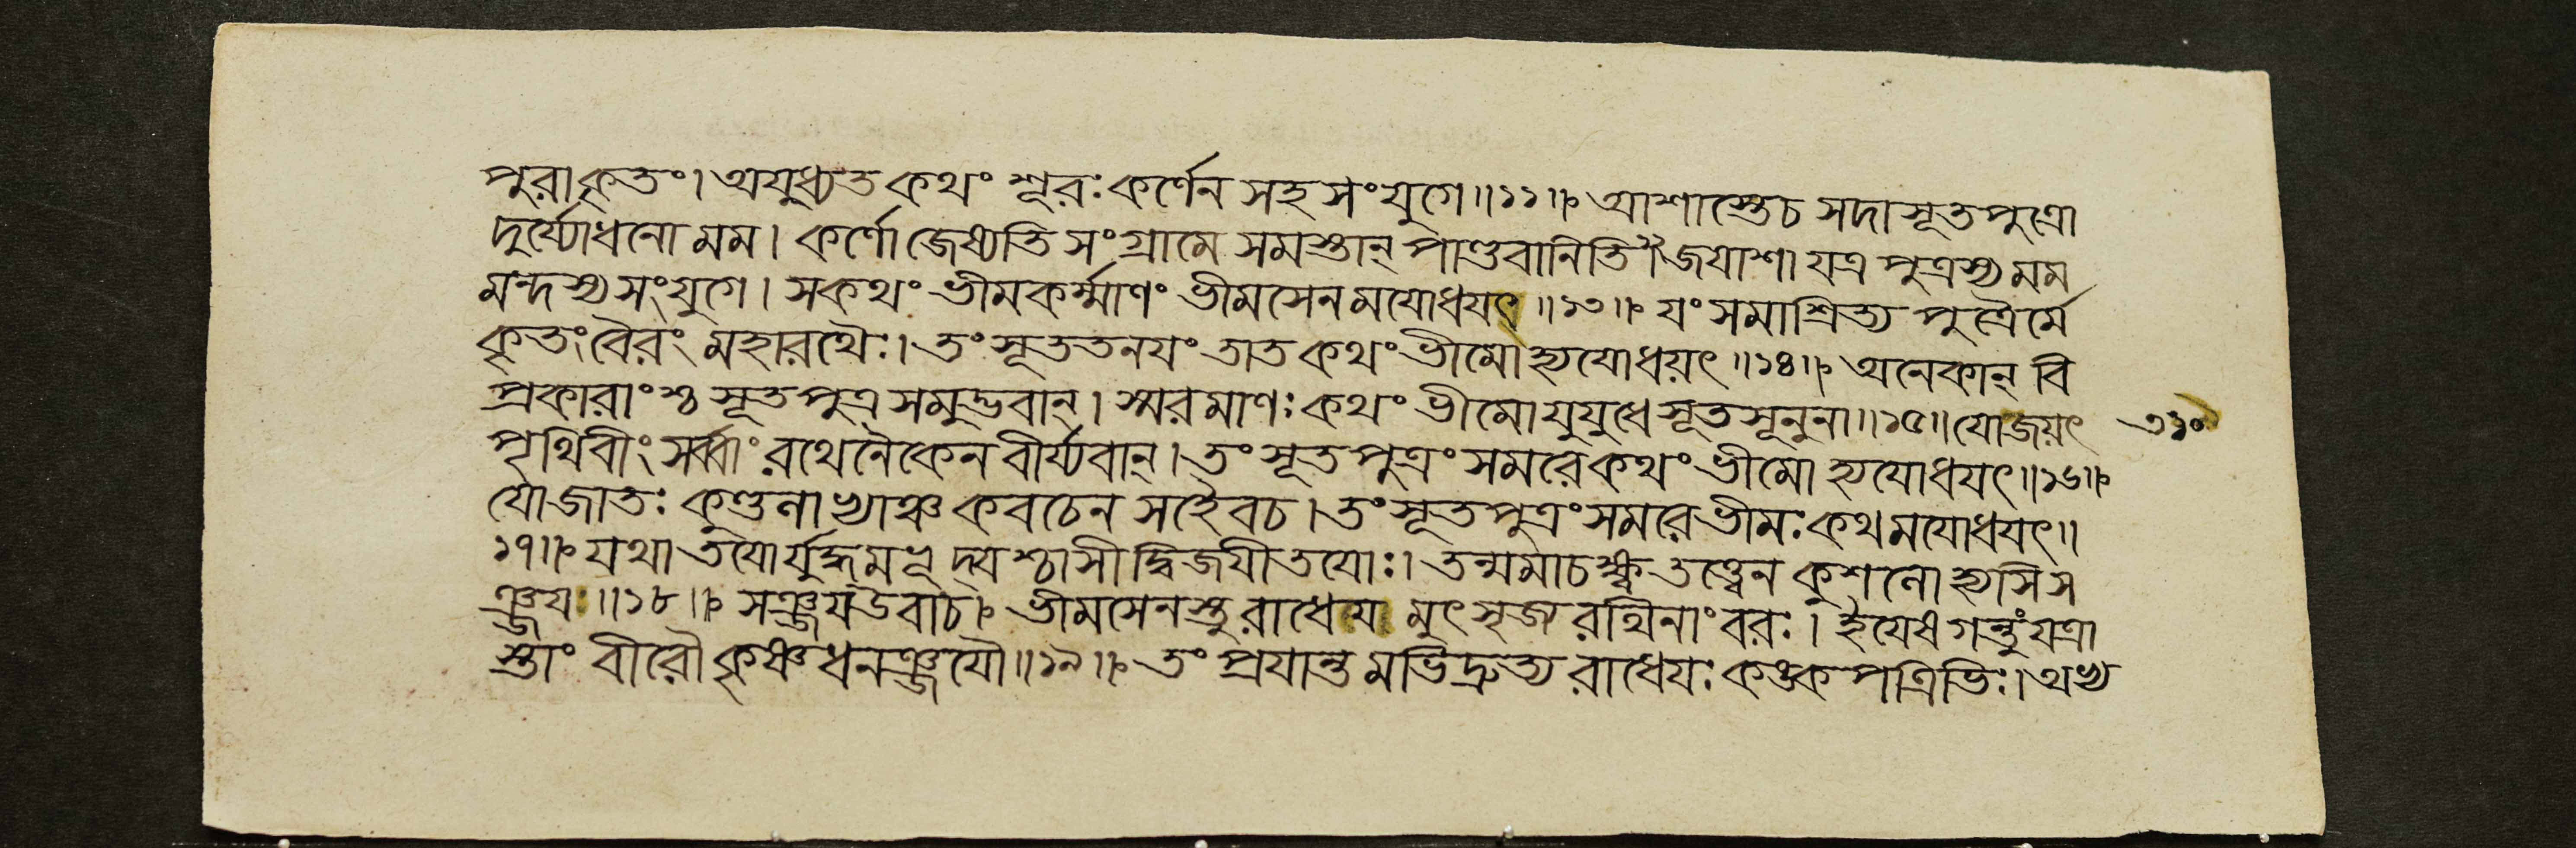 পুরাকৃতং। অযুধ্যত কথং শূরঃ কর্ণেন সহ সংযুগে॥১১॥ আশাস্তেচ সদা সূতপুত্রো
দুর্য্যোধনো মম। কর্ণো জেষ্যতি সংগ্রামে সমস্তান্ পাণ্ডবানিতি জয়াশা যত্র পুত্রস্য মম
মন্দস্য সংযুগে। সকথং ভীমকর্ম্মাণং ভীমসেনমযোধযৎ॥১৩॥ যং সমাশ্রিত্য পুত্রৈর্মে
কৃতং বৈরং মহারথৈঃ। তং সূততনযং তাত কথং ভীমো হ্যযোধয়ৎ॥১৪॥ অনেকান্ বি
প্রকারাংশ্চ সূতপুত্র সমুদ্ভবান্। স্মরমাণঃ কথং ভীমো যুযুধে সূতসূনুনা॥১৫॥ যোজয়ৎ ৩১০
পৃথিবীং সর্ব্বাং রথেনৈকেন বীর্য্যবান্। তং সূতপুত্রং সমরে কথং ভীমো হ্যযোধযৎ॥১৬॥
যোজাতঃ কুণ্ডলাভ্যাঞ্চ কবচেন সহৈবচ। তং সূতপুত্রং সমরে ভীমঃ কথমযোধযৎ॥
১৭॥ যথা তযোর্যুদ্ধমভূদ্যশ্চাসীদ্বিজযী তযোঃ। তন্মমাচক্ষ্ব তত্ত্বেন কুশলো হ্যসি স
ঞ্জযঃ॥১৮॥ সঞ্জযউবাচ। ভীমসেনস্তু রাধেয মুৎসৃজ্য রথিনাং বরঃ। ইযেষ গন্তুং যত্রা
স্তাং বীরৌ কৃষ্ণধনঞ্জযৌ॥১৯॥ তং প্রযান্তমভিদ্রুত্য রাধেযঃ কঙ্কপত্রিভিঃ। অভ্য